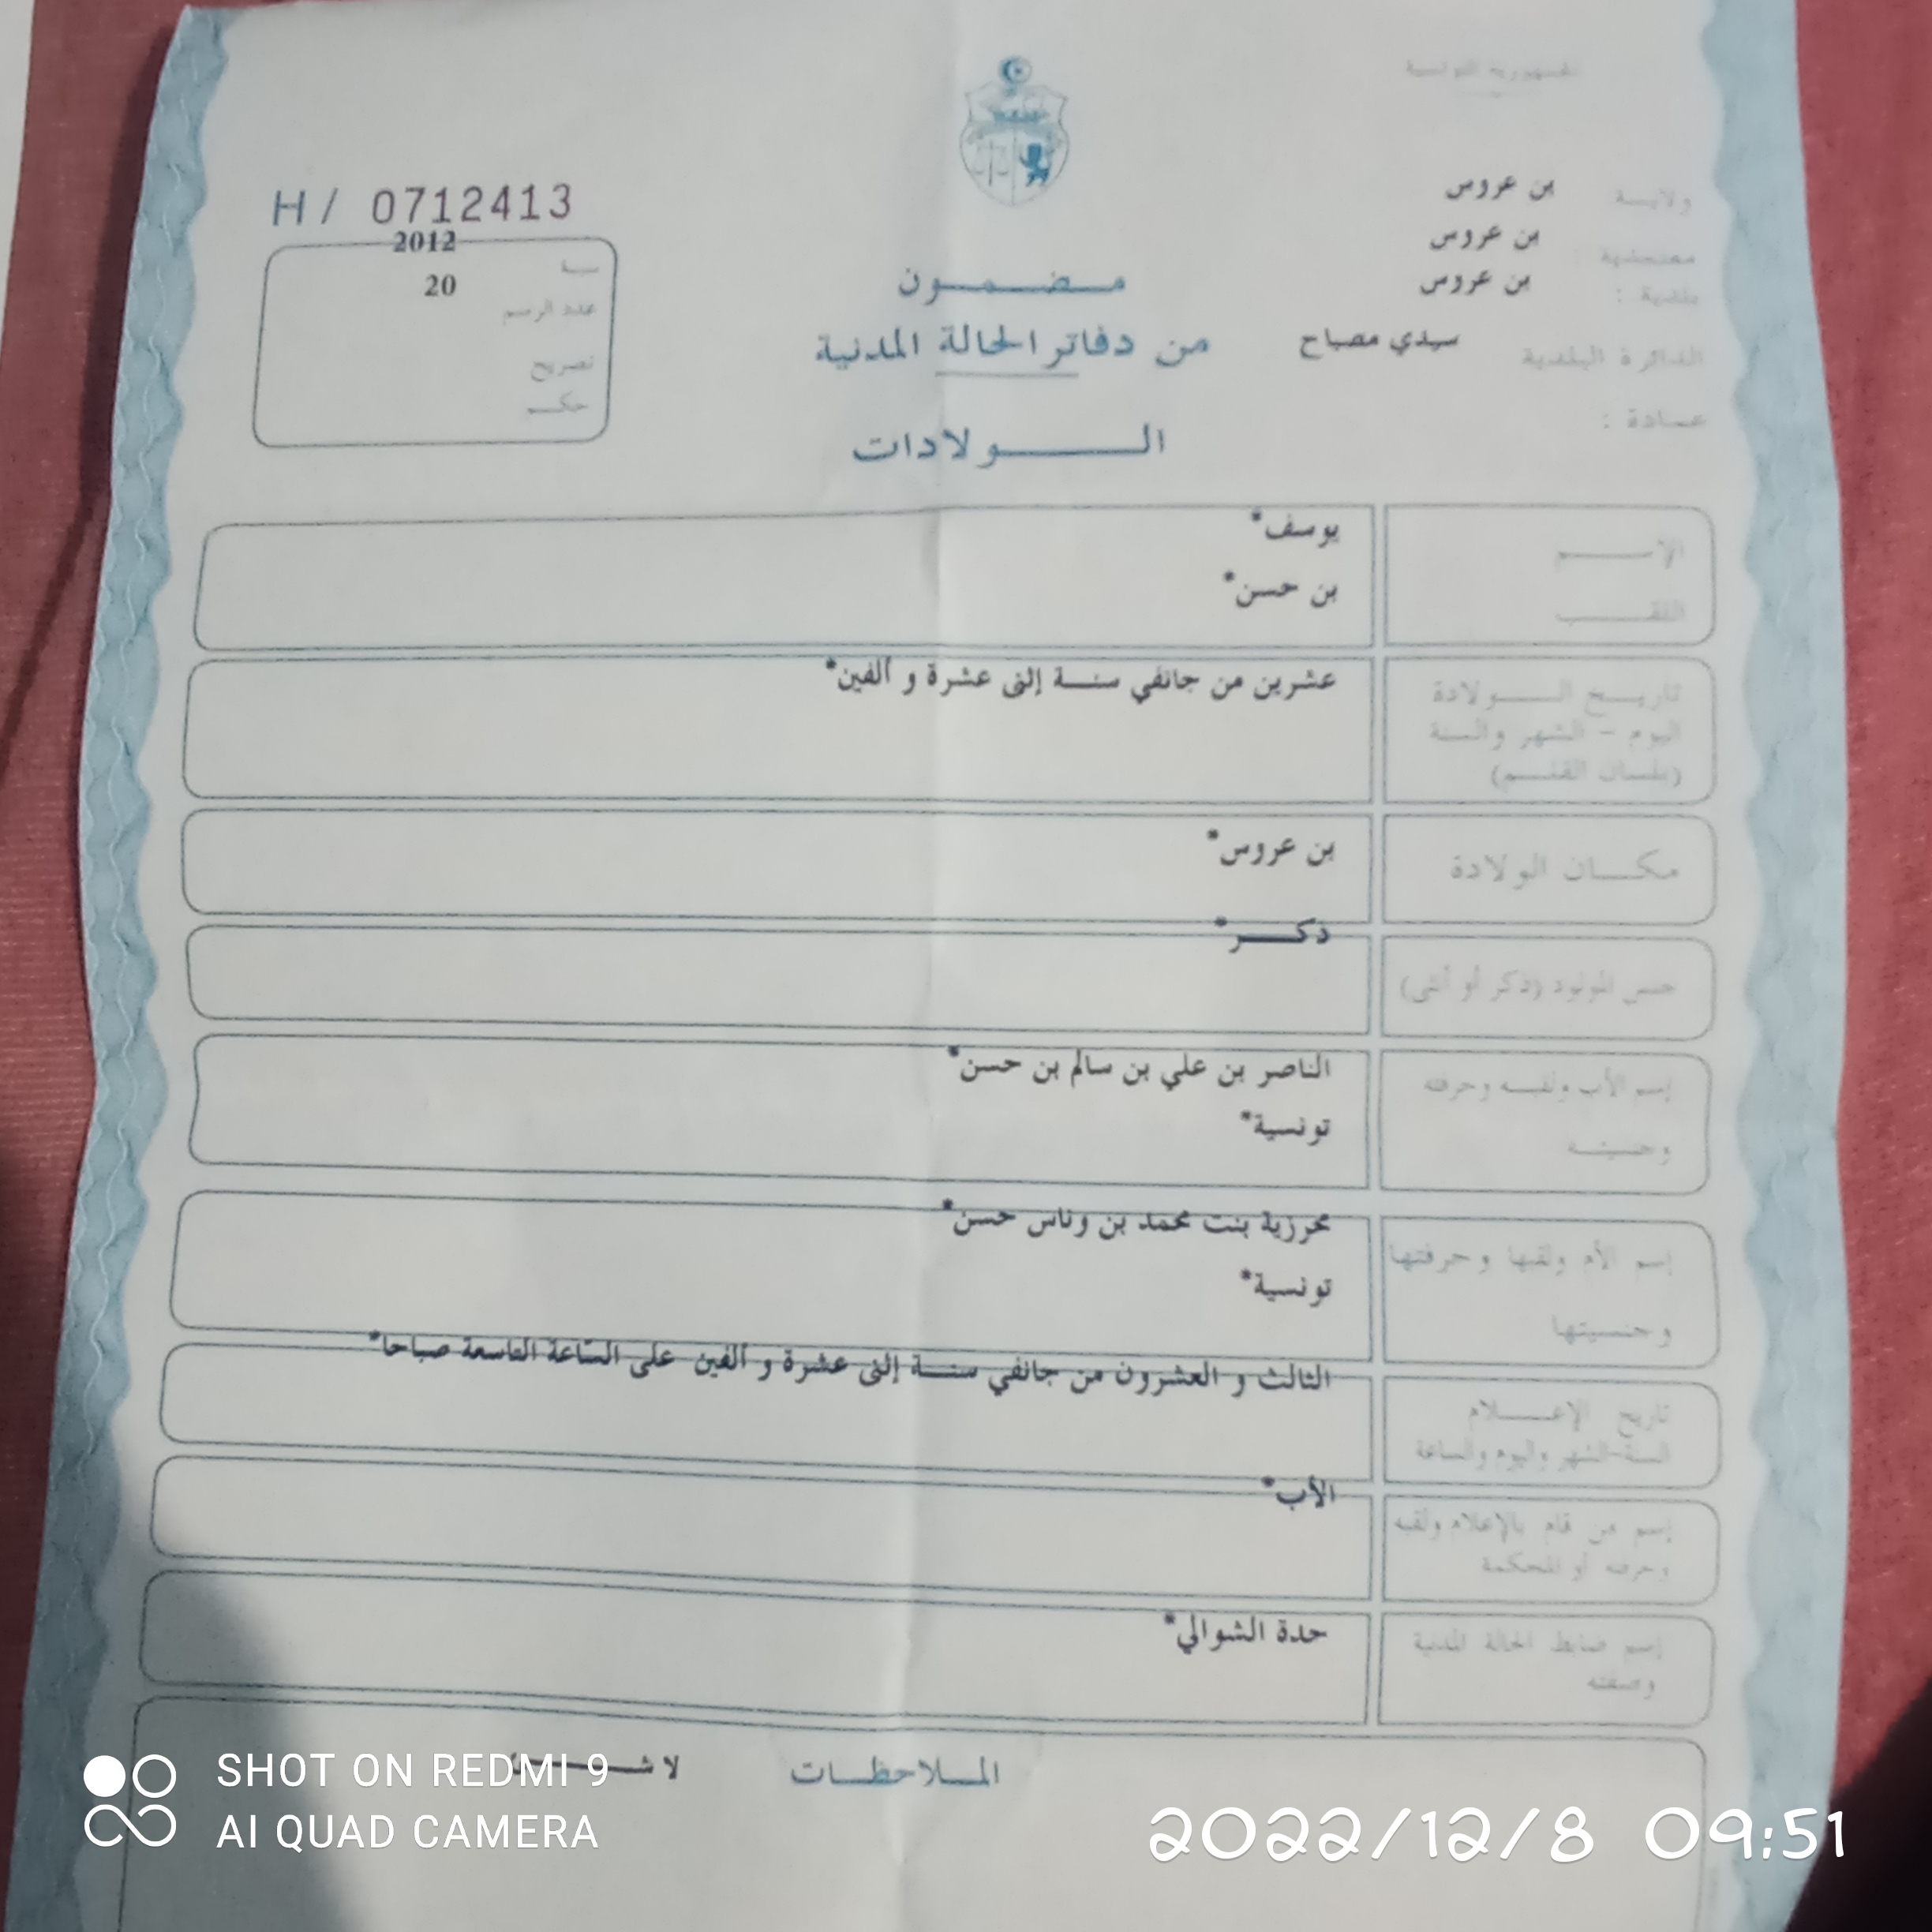 الجمهورية التونسية
H / 0712413
ولايـة بن عروس
معتمدية بن عروس
بلدية : بن عروس
الدائرة البلدية سيدي مصباح
عمادة :
سنة 2012
عدد الرسم 20
تصريح
حكم
مضمون
من دفاتر الحالة المدنية
الولادات
الإسم يوسف*
اللقب بن حسن*
تاريخ الولادة عشرين من جانفي سنة إثنى عشرة و ألفين*
اليوم - الشهر والسنة
(بلسان القلم)
مكان الولادة بن عروس*
جنس المولود (ذكر أو أنثى) ذكر*
إسم الأب ولقبه وحرفته الناصر بن علي بن سالم بن حسن*
وجنسيته تونسية*
إسم الأم ولقبها وحرفتها محرزية بنت محمد بن وناس حسن*
وجنسيتها تونسية*
تاريخ الإعلام الثالث و العشرون من جانفي سنة إثنى عشرة و ألفين على السّاعة التاسعة صباحا*
السنة-الشهر واليوم والساعة
إسم من قام بالإعلام ولقبه الأب*
وحرفته أو المحكمة
إسم ضابط الحالة المدنية حدة الشوالي*
وصفته
الملاحظات
SHOT ON REDMI 9
AI QUAD CAMERA
2022/12/8 09:51